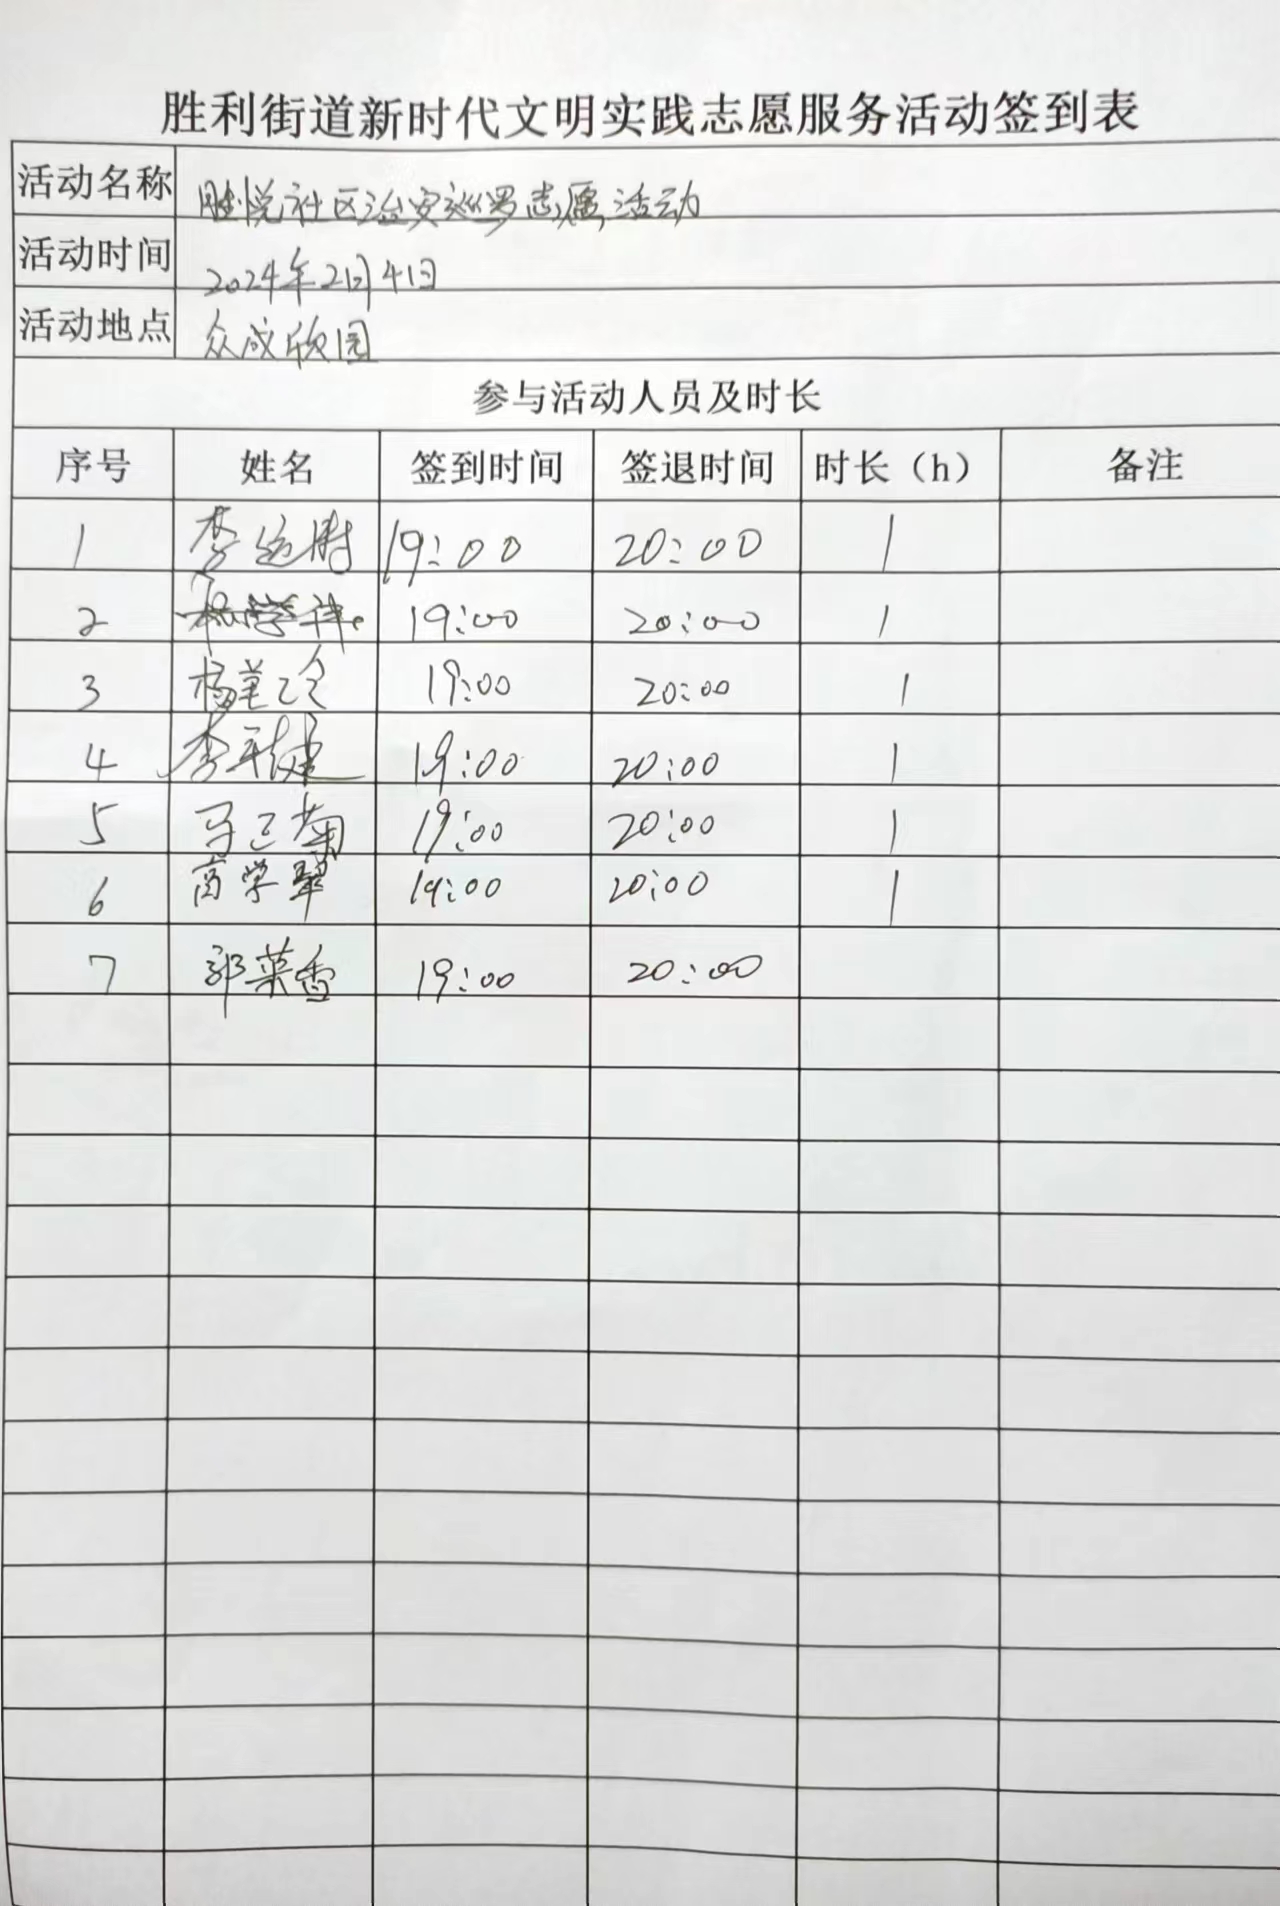 胜利街道新时代文明实践志愿服务活动签到表
活动名称 胜悦社区治安巡逻志愿活动
活动时间 2024年2月4日
活动地点 众成欣园
参与活动人员及时长
序号 姓名 签到时间 签退时间 时长（h） 备注
1 李 19:00 20:00 1
2 19:00 20:00 1
3 杨 19:00 20:00 1
4 李 19:00 20:00 1
5 马 菊 19:00 20:00 1
6 商学翠 19:00 20:00 1
7 郭菜香 19:00 20:00